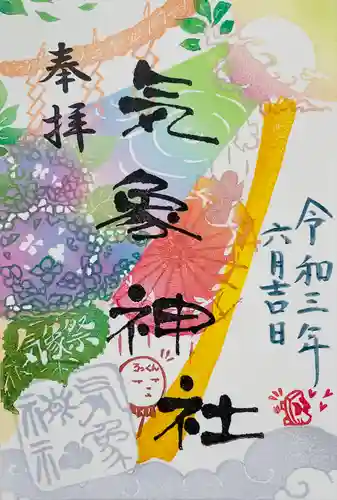 奉拝
気象神社
令和三年
六月吉日
気象祭
てっくん
気象
神社